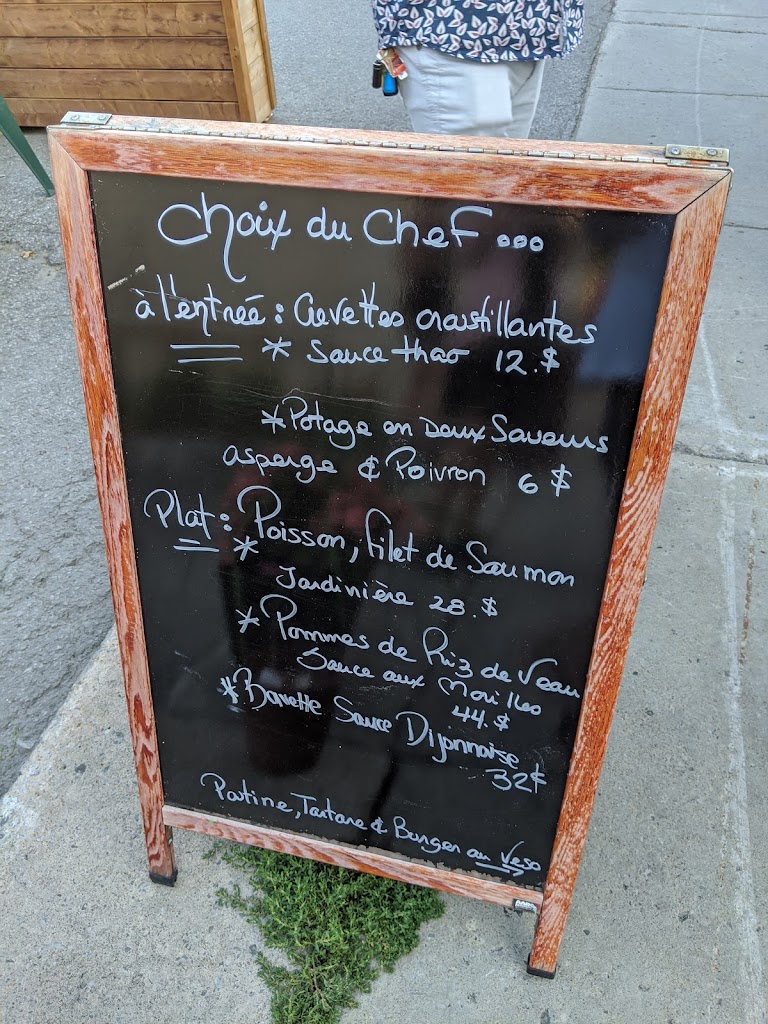 Choix du Chef...
à l'entrée : Crevettes croustillantes
* Sauce thaï 12.$
* Potage en Deux Saveurs
asperge & Poivron 6$
Plat : Poisson, filet de Saumon
* Jardinière 28.$
* Pommes de Riz de Veau
Sauce aux Morilles
44.$
* Bavette Sauce Dijonnaise
32$
Poutine, Tartare & Burger au Verso